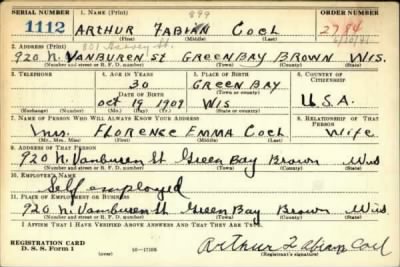 SERIAL NUMBER 1. NAME (Print) 899 ORDER NUMBER
1112 ARTHUR FABIAN COEL 2784
(First) (Middle) (Last)
2. ADDRESS (Print)
920 N. VANBUREN St GREEN BAY BROWN WIS.
(Number and street or R. F. D. number) (Town) (County) (State)
3. TELEPHONE 4. AGE IN YEARS 5. PLACE OF BIRTH 6. COUNTRY OF CITIZENSHIP
30 GREEN BAY
DATE OF BIRTH (Town or county)
Oct 19 1909 WIS U.S.A.
(Exchange) (Number) (Mo.) (Day) (Yr.) (State or country)
7. NAME OF PERSON WHO WILL ALWAYS KNOW YOUR ADDRESS 8. RELATIONSHIP OF THAT PERSON
Mrs. FLORENCE EMMA COEL Wife
(Mr., Mrs., Miss) (First) (Middle) (Last)
9. ADDRESS OF THAT PERSON
920 N. Vanburen St Green Bay Brown Wis
(Number and street or R. F. D. number) (Town) (County) (State)
10. EMPLOYER'S NAME
Self employed
11. PLACE OF EMPLOYMENT OR BUSINESS
920 N. Vanburen St Green Bay Brown Wis.
(Number and street or R. F. D. number) (Town) (County) (State)
I AFFIRM THAT I HAVE VERIFIED ABOVE ANSWERS AND THAT THEY ARE TRUE.
REGISTRATION CARD
D. S. S. Form 1 16—17105 Arthur Fabian Coel
(Registrant's signature)